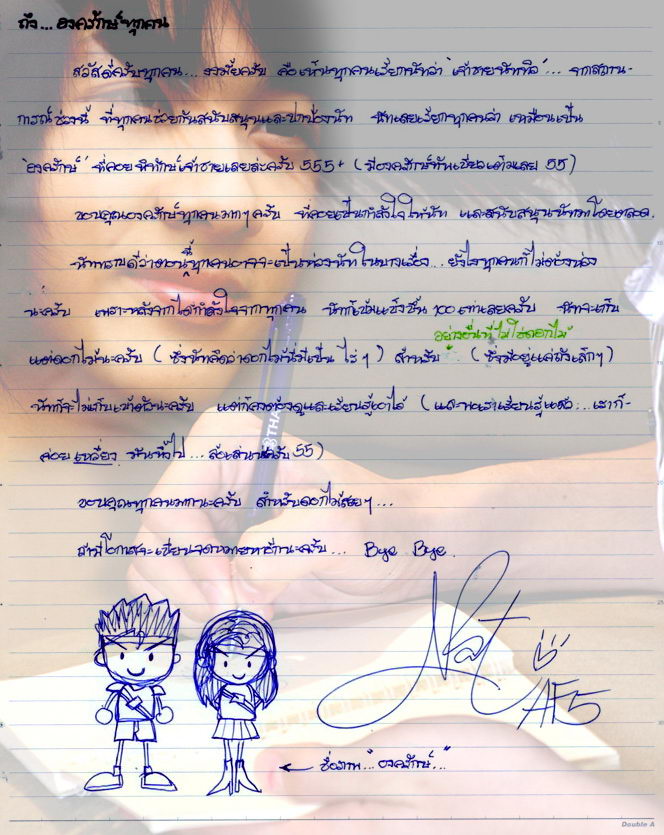 ถึง... องครักษ์ทุกคน
สวัสดีครับทุกคน... งงมั้ยครับ คือเห็นทุกคนเรียกนัทว่า "เจ้าชายนัททิว"... จากสถาน-
การณ์ช่วงนี้ ที่ทุกคนช่วยกันสนับสนุนและปกป้องนัท นัทเลยเรียกทุกคนว่า เหมือนเป็น
"องครักษ์" ที่คอยพิทักษ์เจ้าชายเลยล่ะครับ 555+ (มีองครักษ์ทันเขียวเต็มเลย 55)
ขอบคุณองครักษ์ทุกคนมากๆครับ ที่คอยเป็นกำลังใจให้นัท และสนับสนุนนัทมาโดยตลอด.
นัททราบดีว่าตอนนี้ทุกคนอาจจะเป็นห่วงนัทในบางเรื่อง... ยังไงทุกคนก็ไม่ต้องห่วง
นะครับ เพราะหลังจากได้กำลังใจจากทุกคน นัทก็เข้มแข็งขึ้น 100 เท่าเลยครับ นัทจะเก็บ
อย่างอื่นที่ไม่ใช่ดอกไม้
แต่ดอกไม้นะครับ (ซึ่งนัทคิดว่าดอกไม้นี่มีเป็น ไร่ๆ) สำหรับ (ซึ่งมีอยู่แค่ถังเล็กๆ)
นัทก็จะไม่เก็บเข้าตัวนะครับ แต่ก็คงต้องดูและเรียนรู้เอาไว้ (และพอเราเรียนรู้แล้ว... เราก็-
ค่อย เหวี่ยง มันทิ้งไป... ล้อเล่นน่ะครับ 55)
ขอบคุณทุกคนมากนะครับ สำหรับดอกไม้สวยๆ...
ถ้ามีโอกาสจะเขียนจดหมายมาอีกนะครับ... Bye Bye.
Nat
AF5
ชื่อภาพ... "องครักษ์..."
Double A